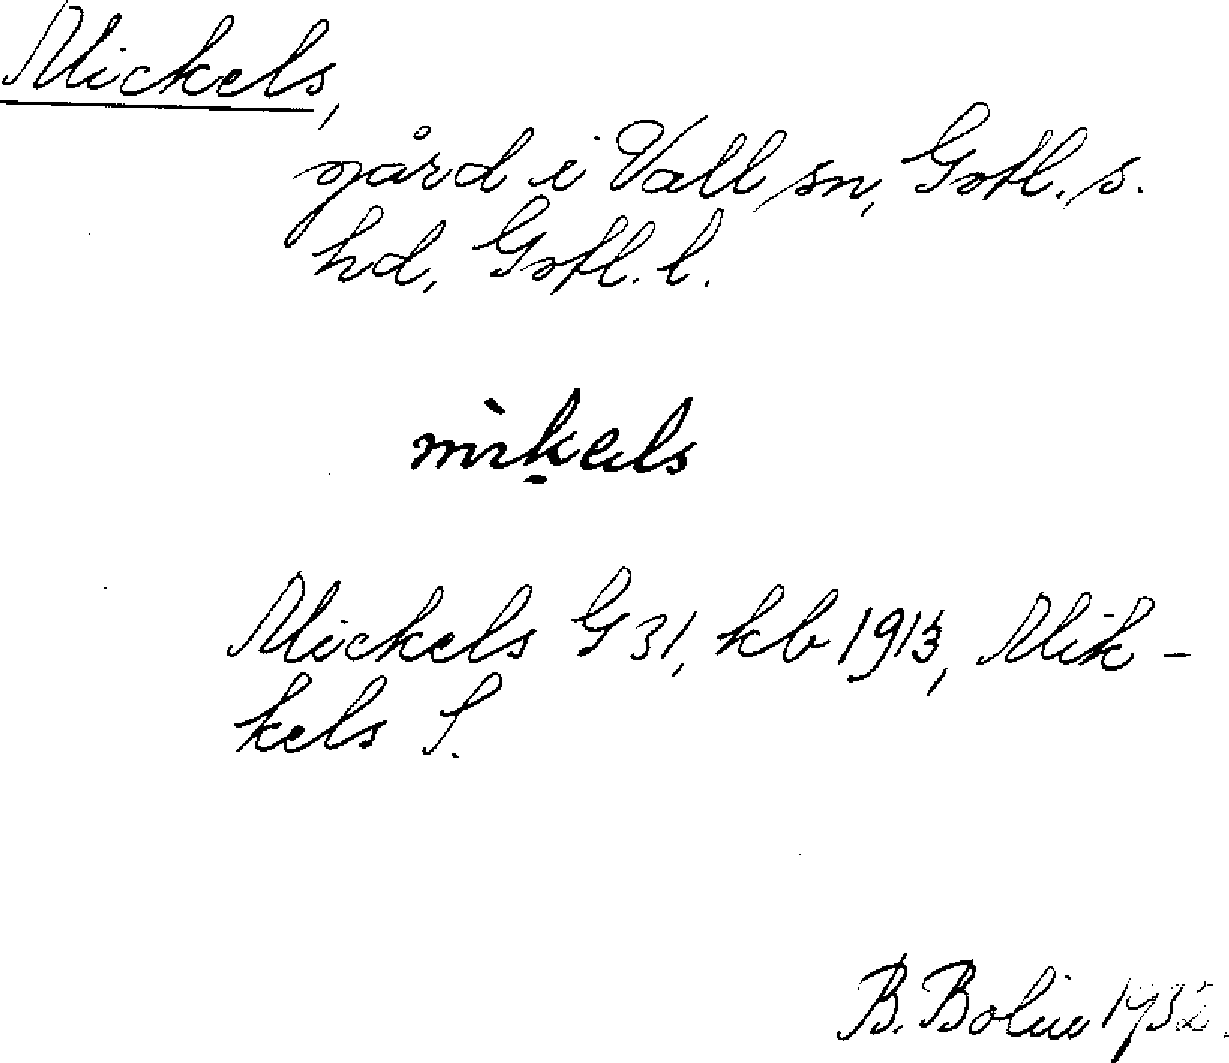 Mickels,
gård i Vall sn, Gotl. s.
hd, Gotl. l.
mìk̠els
Mickels G 31, kb 1913, Mik-
kels S.
B. Bolin 1932.